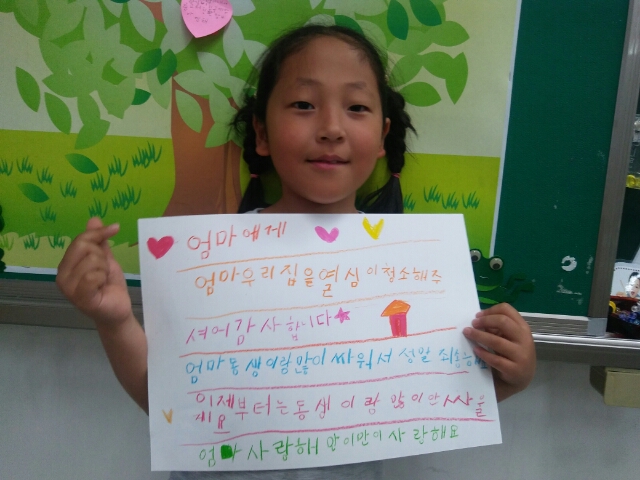 엄마에게
엄마우리집을열심이청소해주
셔어감사합니다
엄마동생이랑많이싸워서성멀
이제부터는동생이랑많이안싸을
게요
엄마사랑해많이많이사랑해요